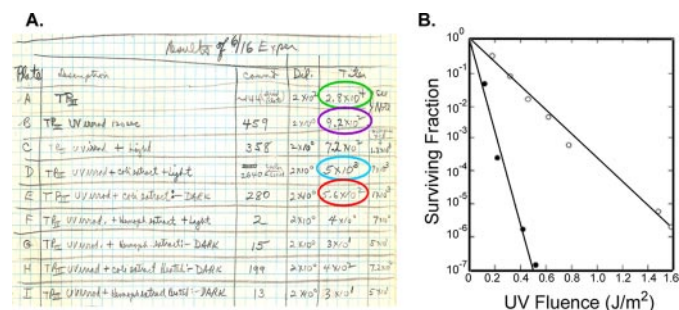 A.
Results of 6/16 Exper
Plate Description Count Dil. Titer
A TPII 2x10² 2.8x10⁴ See Note
B TPII UV irrad 459 2x10⁰ 9.2x10²
C TPII UV irrad + Light 358 2x10⁰ 7.2x10²
D TPII UV irrad + coli extract + Light 2x10⁰ 5x10³
E TPII UV irrad + coli extract - DARK 280 2x10⁰ 5.6x10²
F TPII UV irrad. + Hemoph extract + Light 2 2x10⁰ 4x10⁰
G TPII UV irrad. + Hemoph extract - DARK 15 2x10⁰ 3x10¹
H TPII UV irrad + coli extract - DARK 199 2x10⁰ 4x10²
I TPII UV irrad + Hemoph extract - DARK 13 2x10⁰ 3x10¹
B.
Surviving Fraction
10⁰
10⁻¹
10⁻²
10⁻³
10⁻⁴
10⁻⁵
10⁻⁶
10⁻⁷
0 0.2 0.4 0.6 0.8 1.0 1.2 1.4 1.6
UV Fluence (J/m²)